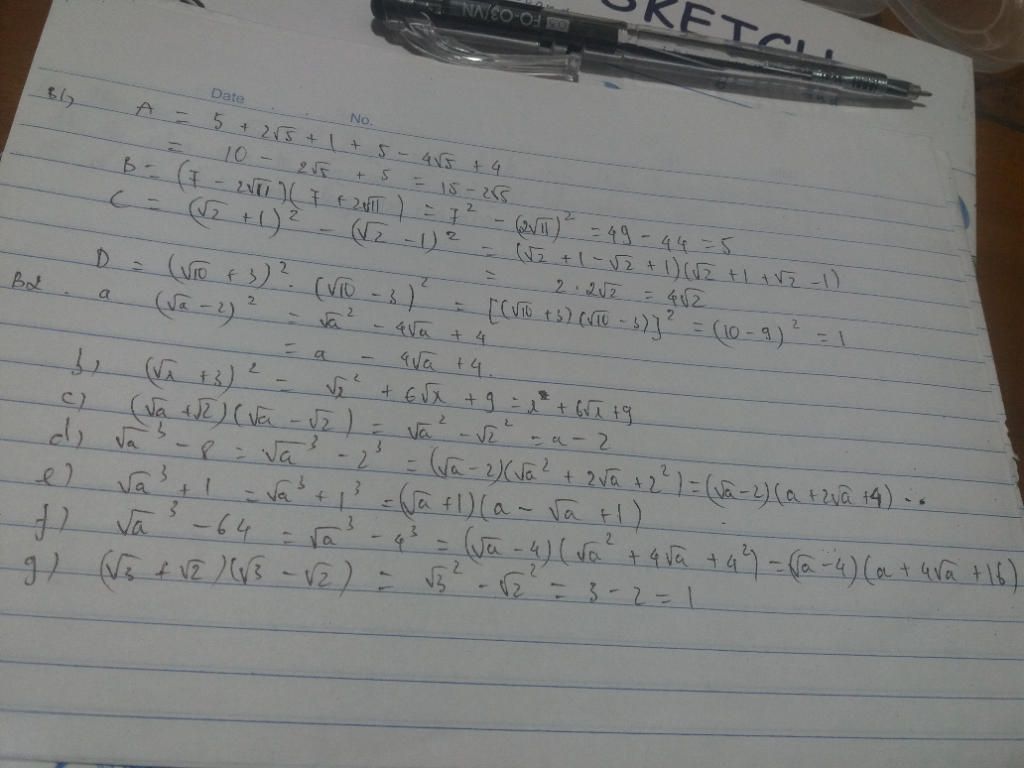 SKETCH
FO-03/VN
Date
No.
B1, A = 5 + 2√5 + 1 + 5 - 4√5 + 4
= 10 - 2√5 + 5 = 15 - 2√5
B = (7 - 2√11)(7 + 2√11) = 7² - (2√11)² = 49 - 44 = 5
C = (√2 + 1)² - (√2 - 1)² = (√2 + 1 - √2 + 1)(√2 + 1 + √2 - 1)
= 2 · 2√2 = 4√2
D = (√10 + 3)² · (√10 - 3)² = [(√10 + 3)(√10 - 3)]² = (10 - 9)² = 1
B2. a (√a - 2)² = √a² - 4√a + 4
= a - 4√a + 4.
b, (√x + 3)² = √x² + 6√x + 9 = x + 6√x + 9
c) (√a + √2)(√a - √2) = √a² - √2² = a - 2
d) √a³ - 8 = √a³ - 2³ = (√a - 2)(√a² + 2√a + 2²) = (√a - 2)(a + 2√a + 4) ..
e) √a³ + 1 = √a³ + 1³ = (√a + 1)(a - √a + 1)
f) √a³ - 64 = √a³ - 4³ = (√a - 4)(√a² + 4√a + 4²) = (√a - 4)(a + 4√a + 16)
g) (√3 + √2)(√3 - √2) = √3² - √2² = 3 - 2 = 1